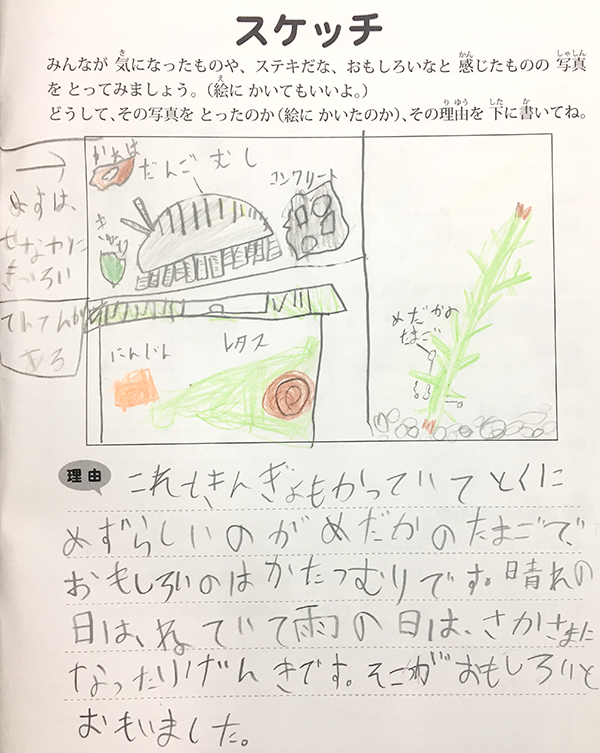 スケッチ
みんなが 気になったものや、ステキだな、おもしろいなと 感じたものの 写真
を とってみましょう。（絵に かいてもいいよ。）
どうして、その写真を とったのか（絵に かいたのか）、その理由を 下に書いてね。
めすは、
せなかに
きいろい
てんてんが
ある
かれは
だんごむし
コンクリート
きゅうり
にんじん
レタス
めだかの
たまご
理由
これもきんぎょもかっていてとくに
めずらしいのがめだかのたまごで、
おもしろいのはかたつむりです。晴れの
日は、ねていて雨の日は、さかさまに
なったりげんきです。そこがおもしろいと
おもいました。